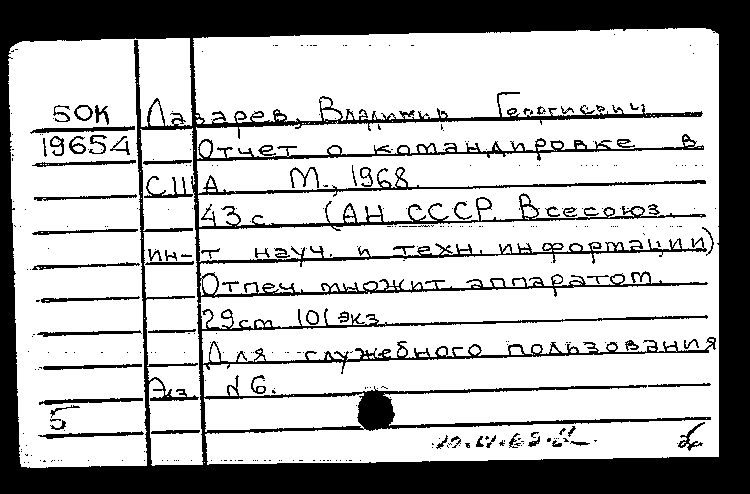 БОК Лазарев, Владимир Георгиевич
19654 Отчет о командировке в
США. М., 1968.
43 с. (АН СССР. Всесоюз.
ин-т науч. и техн. информации)
Отпеч. множит. аппаратом.
29 см 101 экз.
Для служебного пользования
Экз. №6.
5